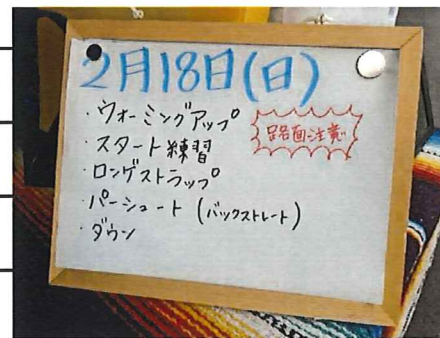 2月18日(日)
・ウォーミングアップ
路面注意
・スタート練習
・ロンゲストラップ
・パーシュート (バックストレート)
・ダウン